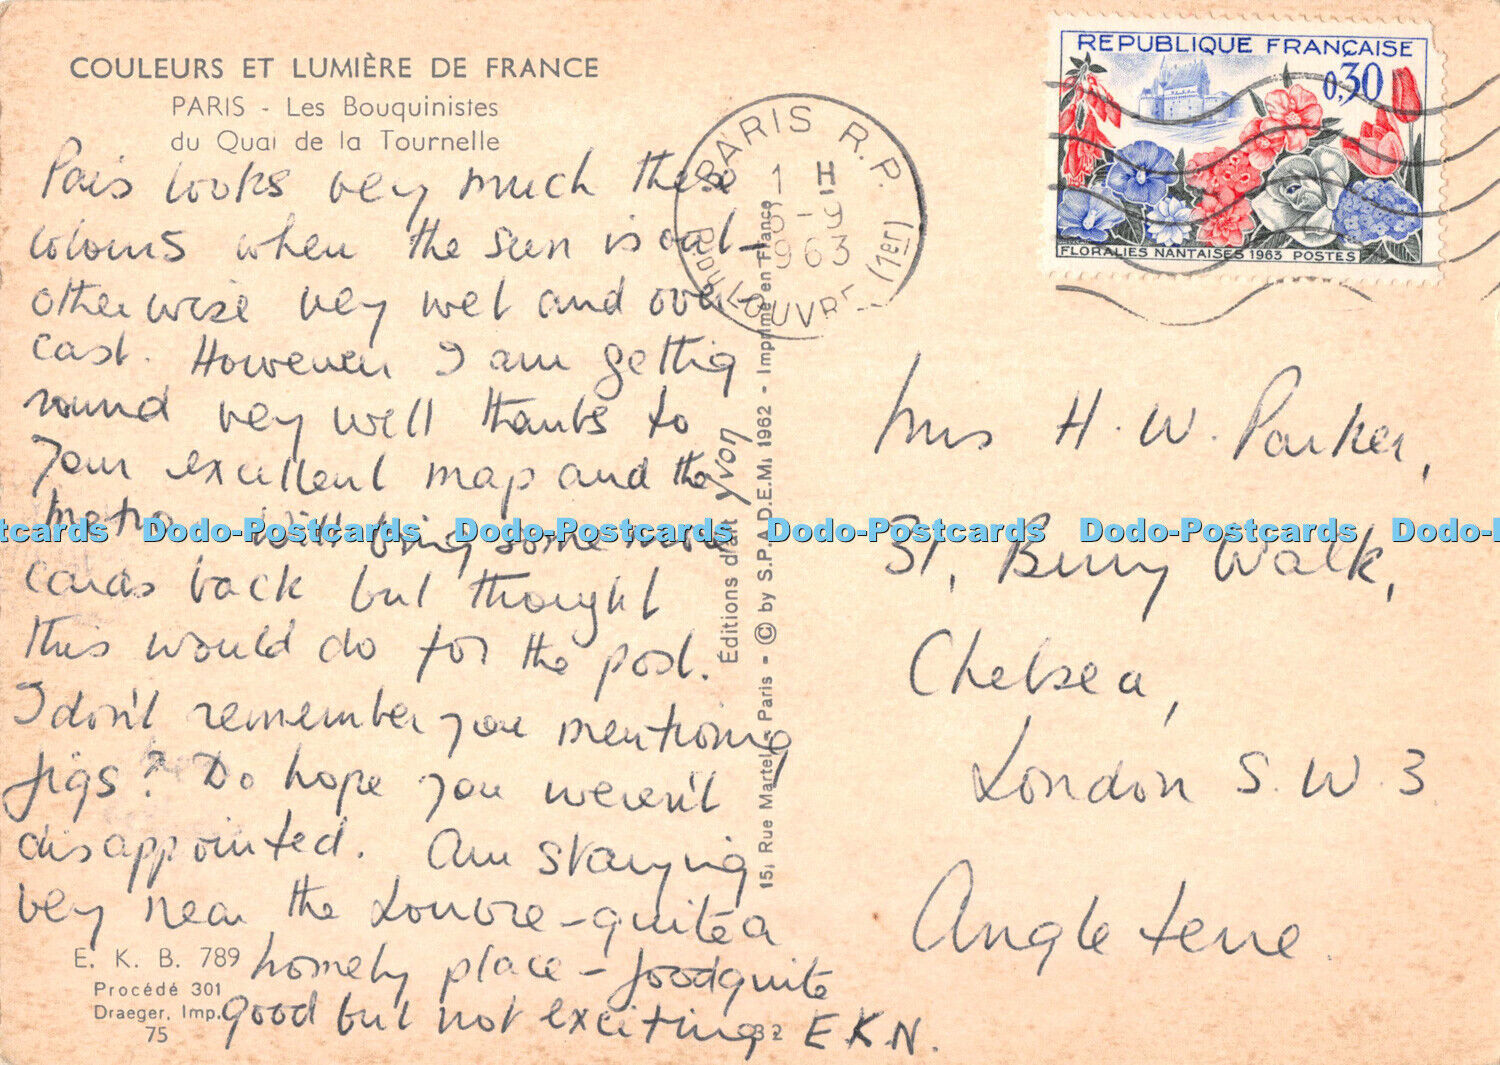 COULEURS ET LUMIÈRE DE FRANCE
PARIS - Les Bouquinistes
du Quai de la Tournelle
Paris looks very much these
colours when the sun is out -
otherwise very wet and over-
cast. However I am getting
round very well thanks to
your excellent map and the
metro. Will bring some more
cards back but thought
this would do for the post.
I don't remember you mentioning
figs? Do hope you weren't
disappointed. Am staying
very near the Louvre - quite a
homely place - food quite
good but not exciting. E.K.N.
E. K. B. 789
Procédé 301
Draeger, Imp.
75
32
Éditions d'art Yvon
15, Rue Martel - Paris - © by S.P.A.D.E.M. 1962 - Imprimé en France
PARIS R.P.
1 H
9
963
R. DU LOUVRE (1er)
REPUBLIQUE FRANÇAISE
0,30
FLORALIES NANTAISES 1963 POSTES
Mrs H. W. Parker,
31, Bury Walk,
Chelsea,
London S.W.3
Angleterre.
Dodo-Postcards Dodo-Postcards Dodo-Postcards Dodo-Postcards Dodo-Postcards